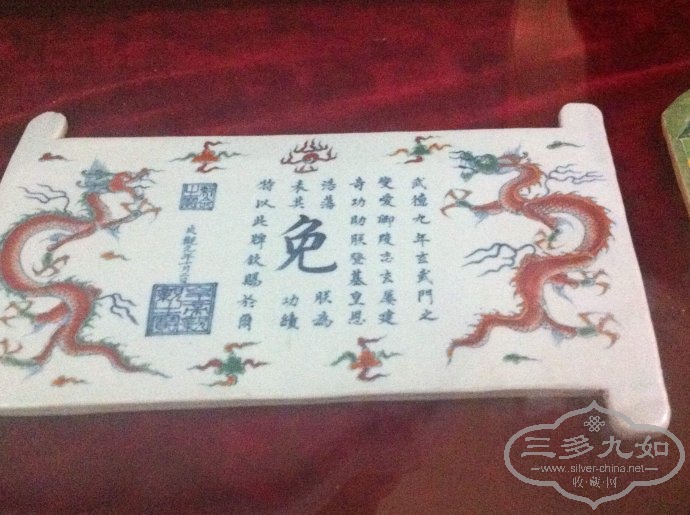 武德九年玄武門之
變愛卿陵志玄屢建
奇功助朕登基皇恩
浩蕩 朕為
表其 功績
免
特以此牌欽賜於爾
三多九如
www.silver-china.net
收·藏·网